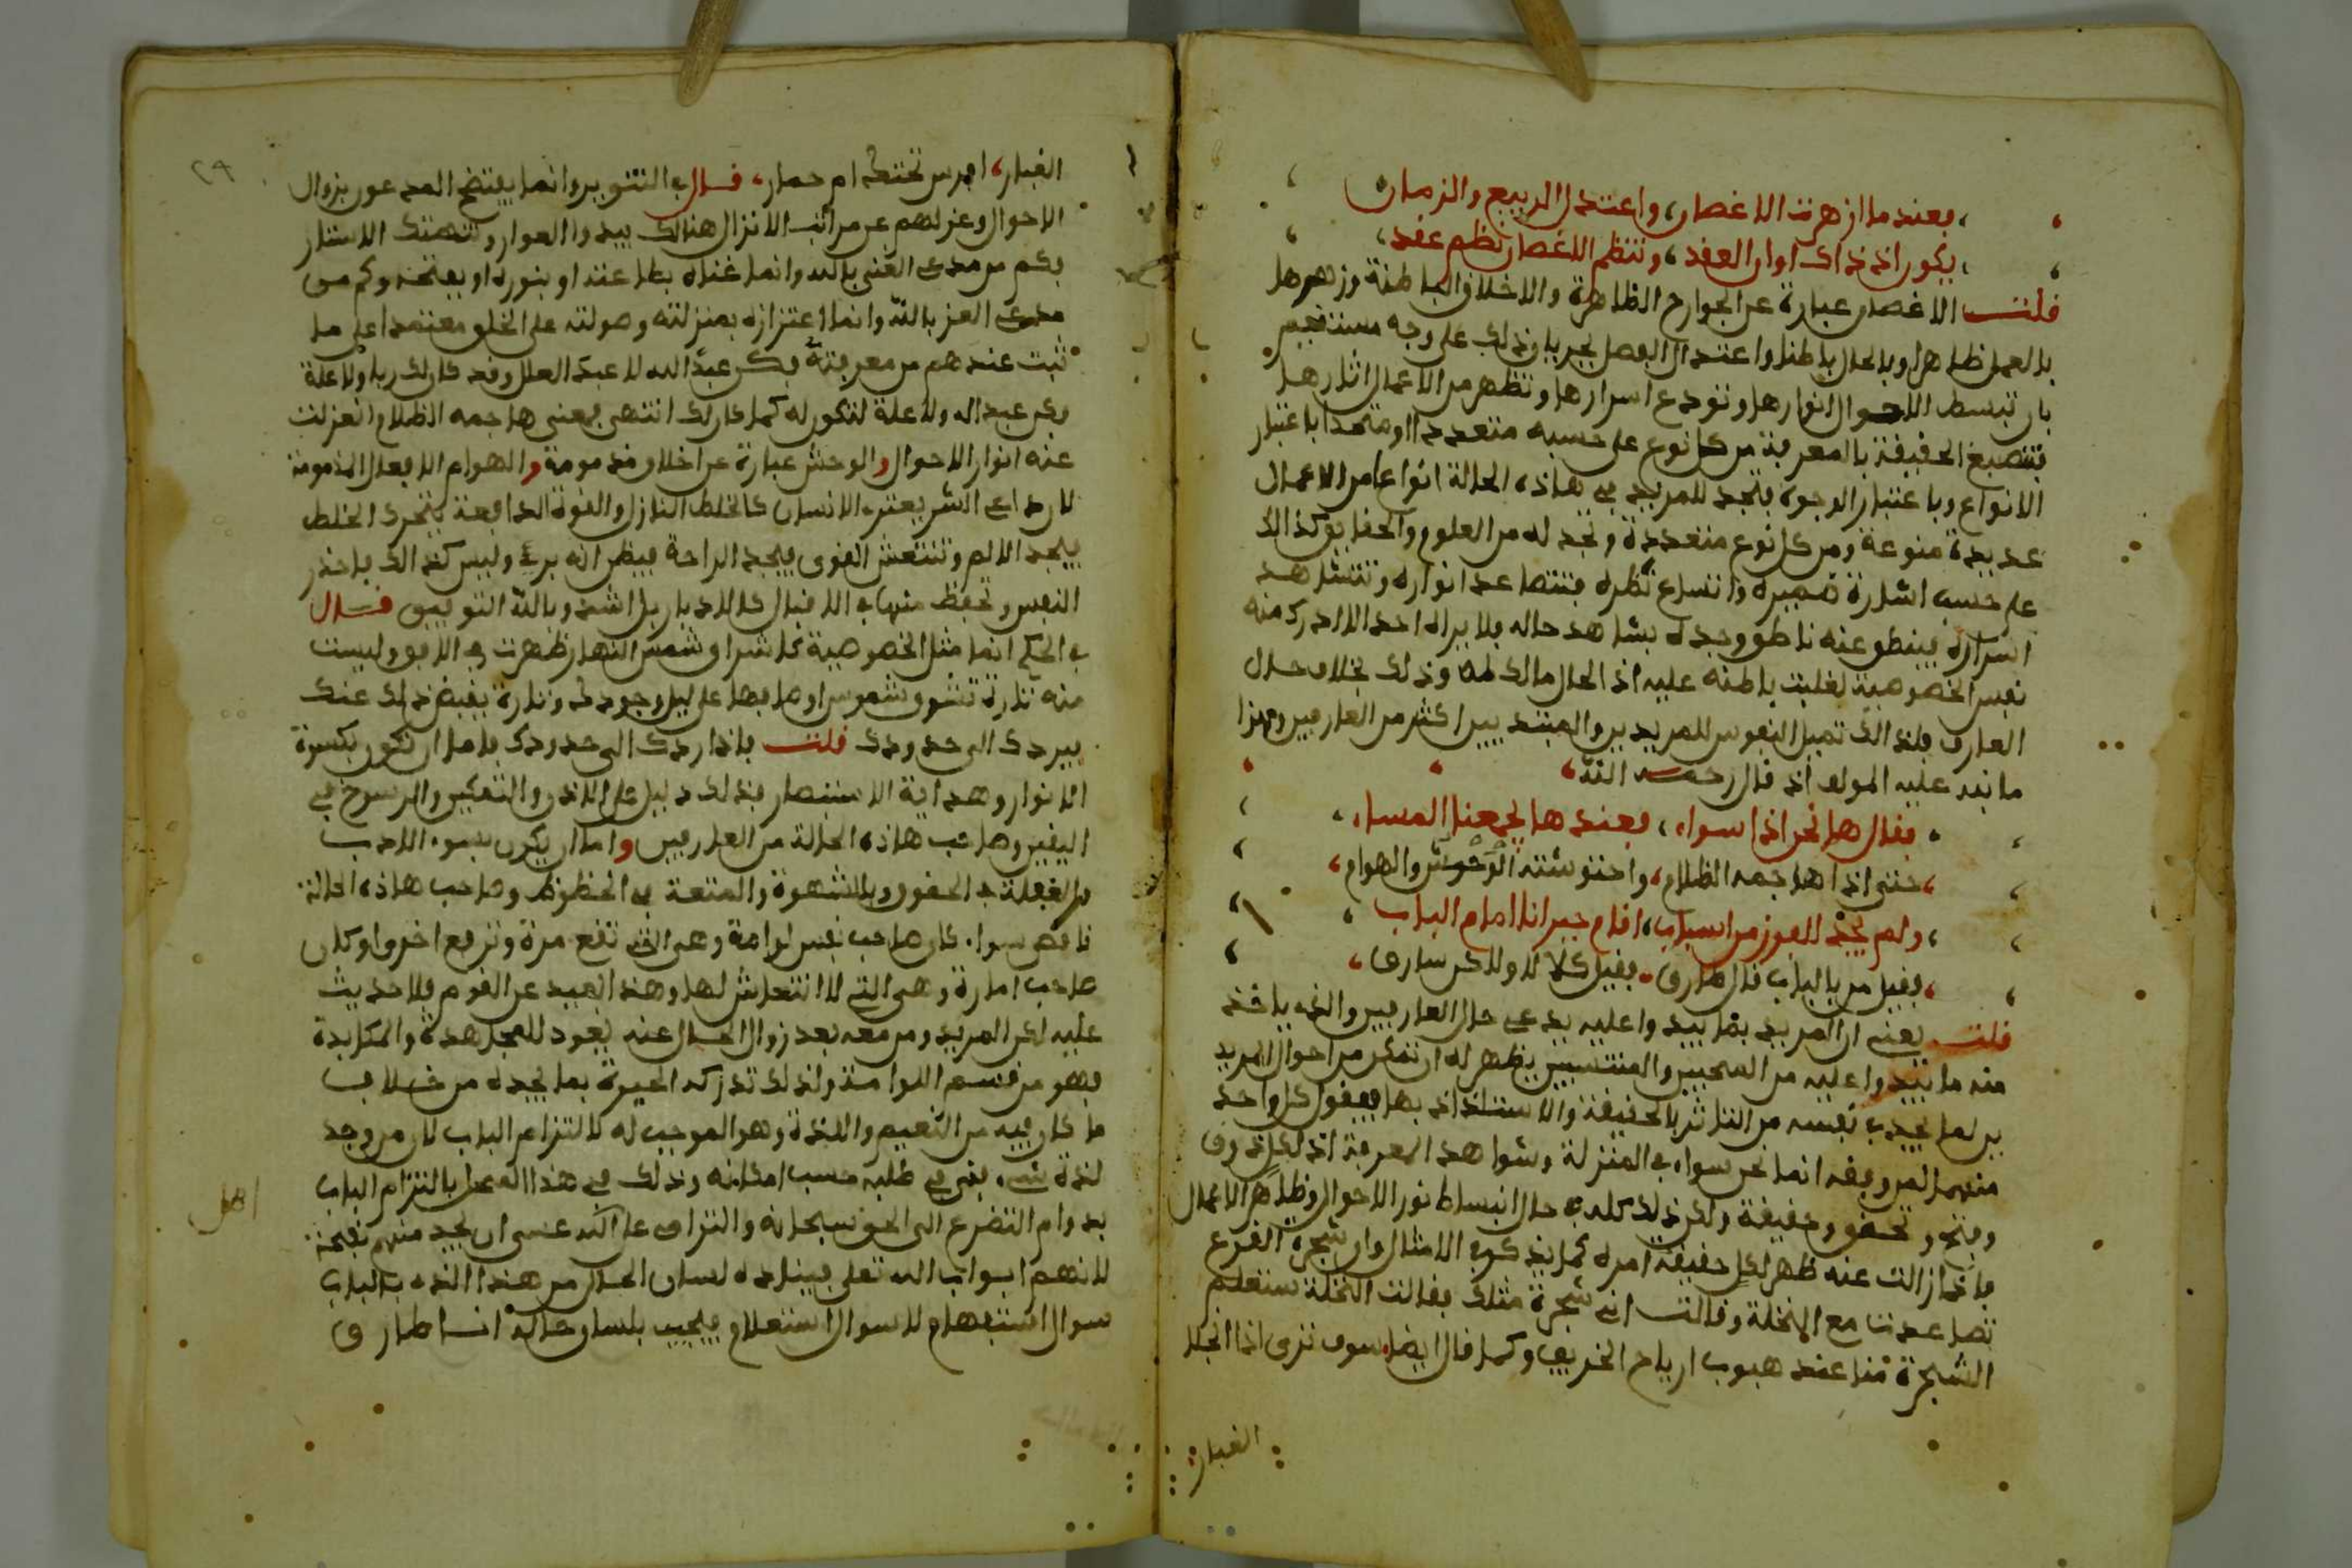 فعندما ازهرت الاغصان، واعتدل الربيع والزمان
يكون اذ ذاك اوان العقد، وتنظم الاغصان نظم عقد،
قلت الاغصان عبارة عن الجوارح الظاهرة والاخلاق الباطنة وزهرها
بالعمل ظاهرا وبالحال باطنا واعتدال الفصل بجريان ذلك على وجه مستقيم
بان تبسط الاحوال انوارها وتودع اسرارها وتظهر من الاعمال اثارها
فتنصبغ الحقيقة بالمعرفة من كل نوع على حسبه متعددا او متحدا باعتبار
الانواع وباعتبار الوجوه فيجد المريد في هاذه الحالة انواعا من الاعمال
عديدة منوعة ومن كل نوع متعددة وتجد له من العلوم والحقايق كذالك
على حسب اشارة ضميره واتساع نظره فتتصاعد انواره وتتشاهد
اسراره فينطق عنه ناطق وجده بشاهد حاله فلا يراه احد الا ادرك منه
نفس الخصوصية لغلبت باطنه عليه اذ الحال مالك له وذلك بخلاف حال
العارف فلذالك تميل النفوس للمريدين والمبتديين اكثر من العارفين وهذا
ما نبه عليه المولف اذ قال رحمه الله
فقال ها نحن اذا سواء، فعندها يجمعنا المساء،
حتى اذا هاجمه الظلام، واحتوشته الوحوش والهوام،
ولم يجد للفوز من اسباب، اقام جبرانا امام الباب
فقيل من بالباب قال طارق، فقيل كلا لا ولاكن سارق،
قلت يعني ان المريد بما يبدوا عليه يدعي حال العارفين والذي ياخذ
منه ما يبدوا عليه من المحبين والمنتسبين يظهر له ان تمكن من احوال المريد
بن لما يجد في نفسه من التاثر بالحقيقة والاستلذاذ بها فيقول كل واحد
منهما لمن وفقه انما نحن سواء في المنزلة وشواهد المعرفة اذ لكل ذوق
وفتح وتحقق وحقيقة ولكن ذلك كله في حال انبساط نور الاحوال وظاهر الاعمال
فاذا زالت عنه ظهر لكل حقيقة امره كما يذكر في الامثال وان شجرة القرع
تصاعدت مع النخلة وقالت اني شجرة مثلك فقالت النخلة ستعلم
الشجرة منا عند هبوب ارياح الخريف وكما قال ايضا، سوف ترى اذا انجلا
الغبار
الغبار، افرس تحتك ام حمار، قال في التنوير وانما يفتضح المدعون بزوال
الاحوال وعزلهم عن مراتب الانزال هنالك يبدوا العوار وتنهتك الاستار
فكم من مدعي الغنى بالله وانما غناه بطاعته او بنوره او بفتحه وكم من
مدعي العز بالله وانما اعتزازه بمنزلته وصولته على الخلق معتمدا على ما
ثبت عندهم من معرفته فكن عبد الله لا عبد العلل وقد كان لك ربا ولا علة
فكن عبد اله ولا علة لتكون له كما كان لك انتهى فمعنى هاجمه الظلام انعزلت
عنه انوار الاحوال والوحش عبارة عن اخلاق مذمومة والهوام الافعال المذمومة
لان دواعي الشر يعترى الانسان كالخلط النازل والقوة الدافعة يتحرك الخلط
فيجد الالم وتنتعش القوى فيجد الراحة فيظن انه برئ وليس كذالك فاحذر
النفس وتحفظ منها في الاقبال كالادبار بل اشد وبالله التوفيق قال
في الحكم انما مثل الخصوصية كاشراق شمس النهار ظهرت في الافق وليست
منه تارة تشرق شموس اوصافه على ليل وجودك وتارة يقبض ذلك عنك
فيردك الى حدودك قلت فاذا ردك الى حدودك فاما ان تكون بكسرة
الانوار وهداية الاستبصار فذلك دليل على الاذن والتمكين والرسوخ في
اليقين وصاحب هاذه الحالة من العارفين واما ان يكون بسوء الادب
والغفلة عن الحقوق وبالشهوة والمتعة في الحظوظ وصاحب هاذه الحالة
ناقص سواء كان صاحب نفس لوامة وهي التي تقع مرة وترفع اخرى او كان
صاحب امارة وهي التي لا انتعاش لها وهذا بعيد عن القوم فلا حديث
عليه لكن المريد ومن معه بعد زوال الحال عنه يعود للمجاهدة والمكابدة
فهو من قسم اللوامة ولذلك تدركه الحيرة بما يجده من خلاف
ما كان فيه من النعيم واللذة وهو الموجب له لالتزام الباب لان من وجد
لذة شيء بقي في طلبه حسب امكانه وذلك في هذا المعمل بالتزام الباب
بدوام التضرع الى الحق سبحانه والتزامي على اكبد عسى ان يجد منهم نفحة
لانهم ابواب الله تعلى فيناده لسان الحال من هذا الذي بالباب
سوال استفهام لا سوال استعلام فيجيب بلسان حاله انا طارق
اهل
٢٩